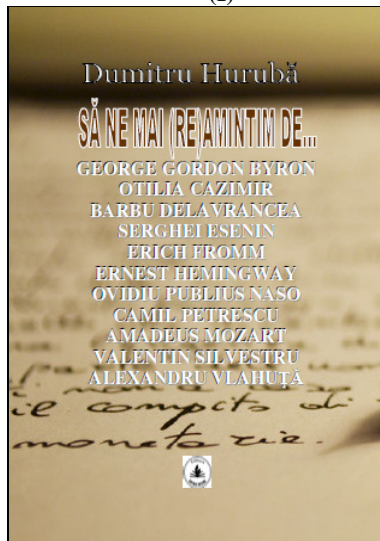 Dumitru Hurubă
SĂ NE MAI (RE)AMINTIM DE...
GEORGE GORDON BYRON
OTILIA CAZIMIR
BARBU DELAVRANCEA
SERGHEI ESENIN
ERICH FROMM
ERNEST HEMINGWAY
OVIDIU PUBLIUS NASO
CAMIL PETRESCU
AMADEUS MOZART
VALENTIN SILVESTRU
ALEXANDRU VLAHUŢĂ
il compito di
monetarie.